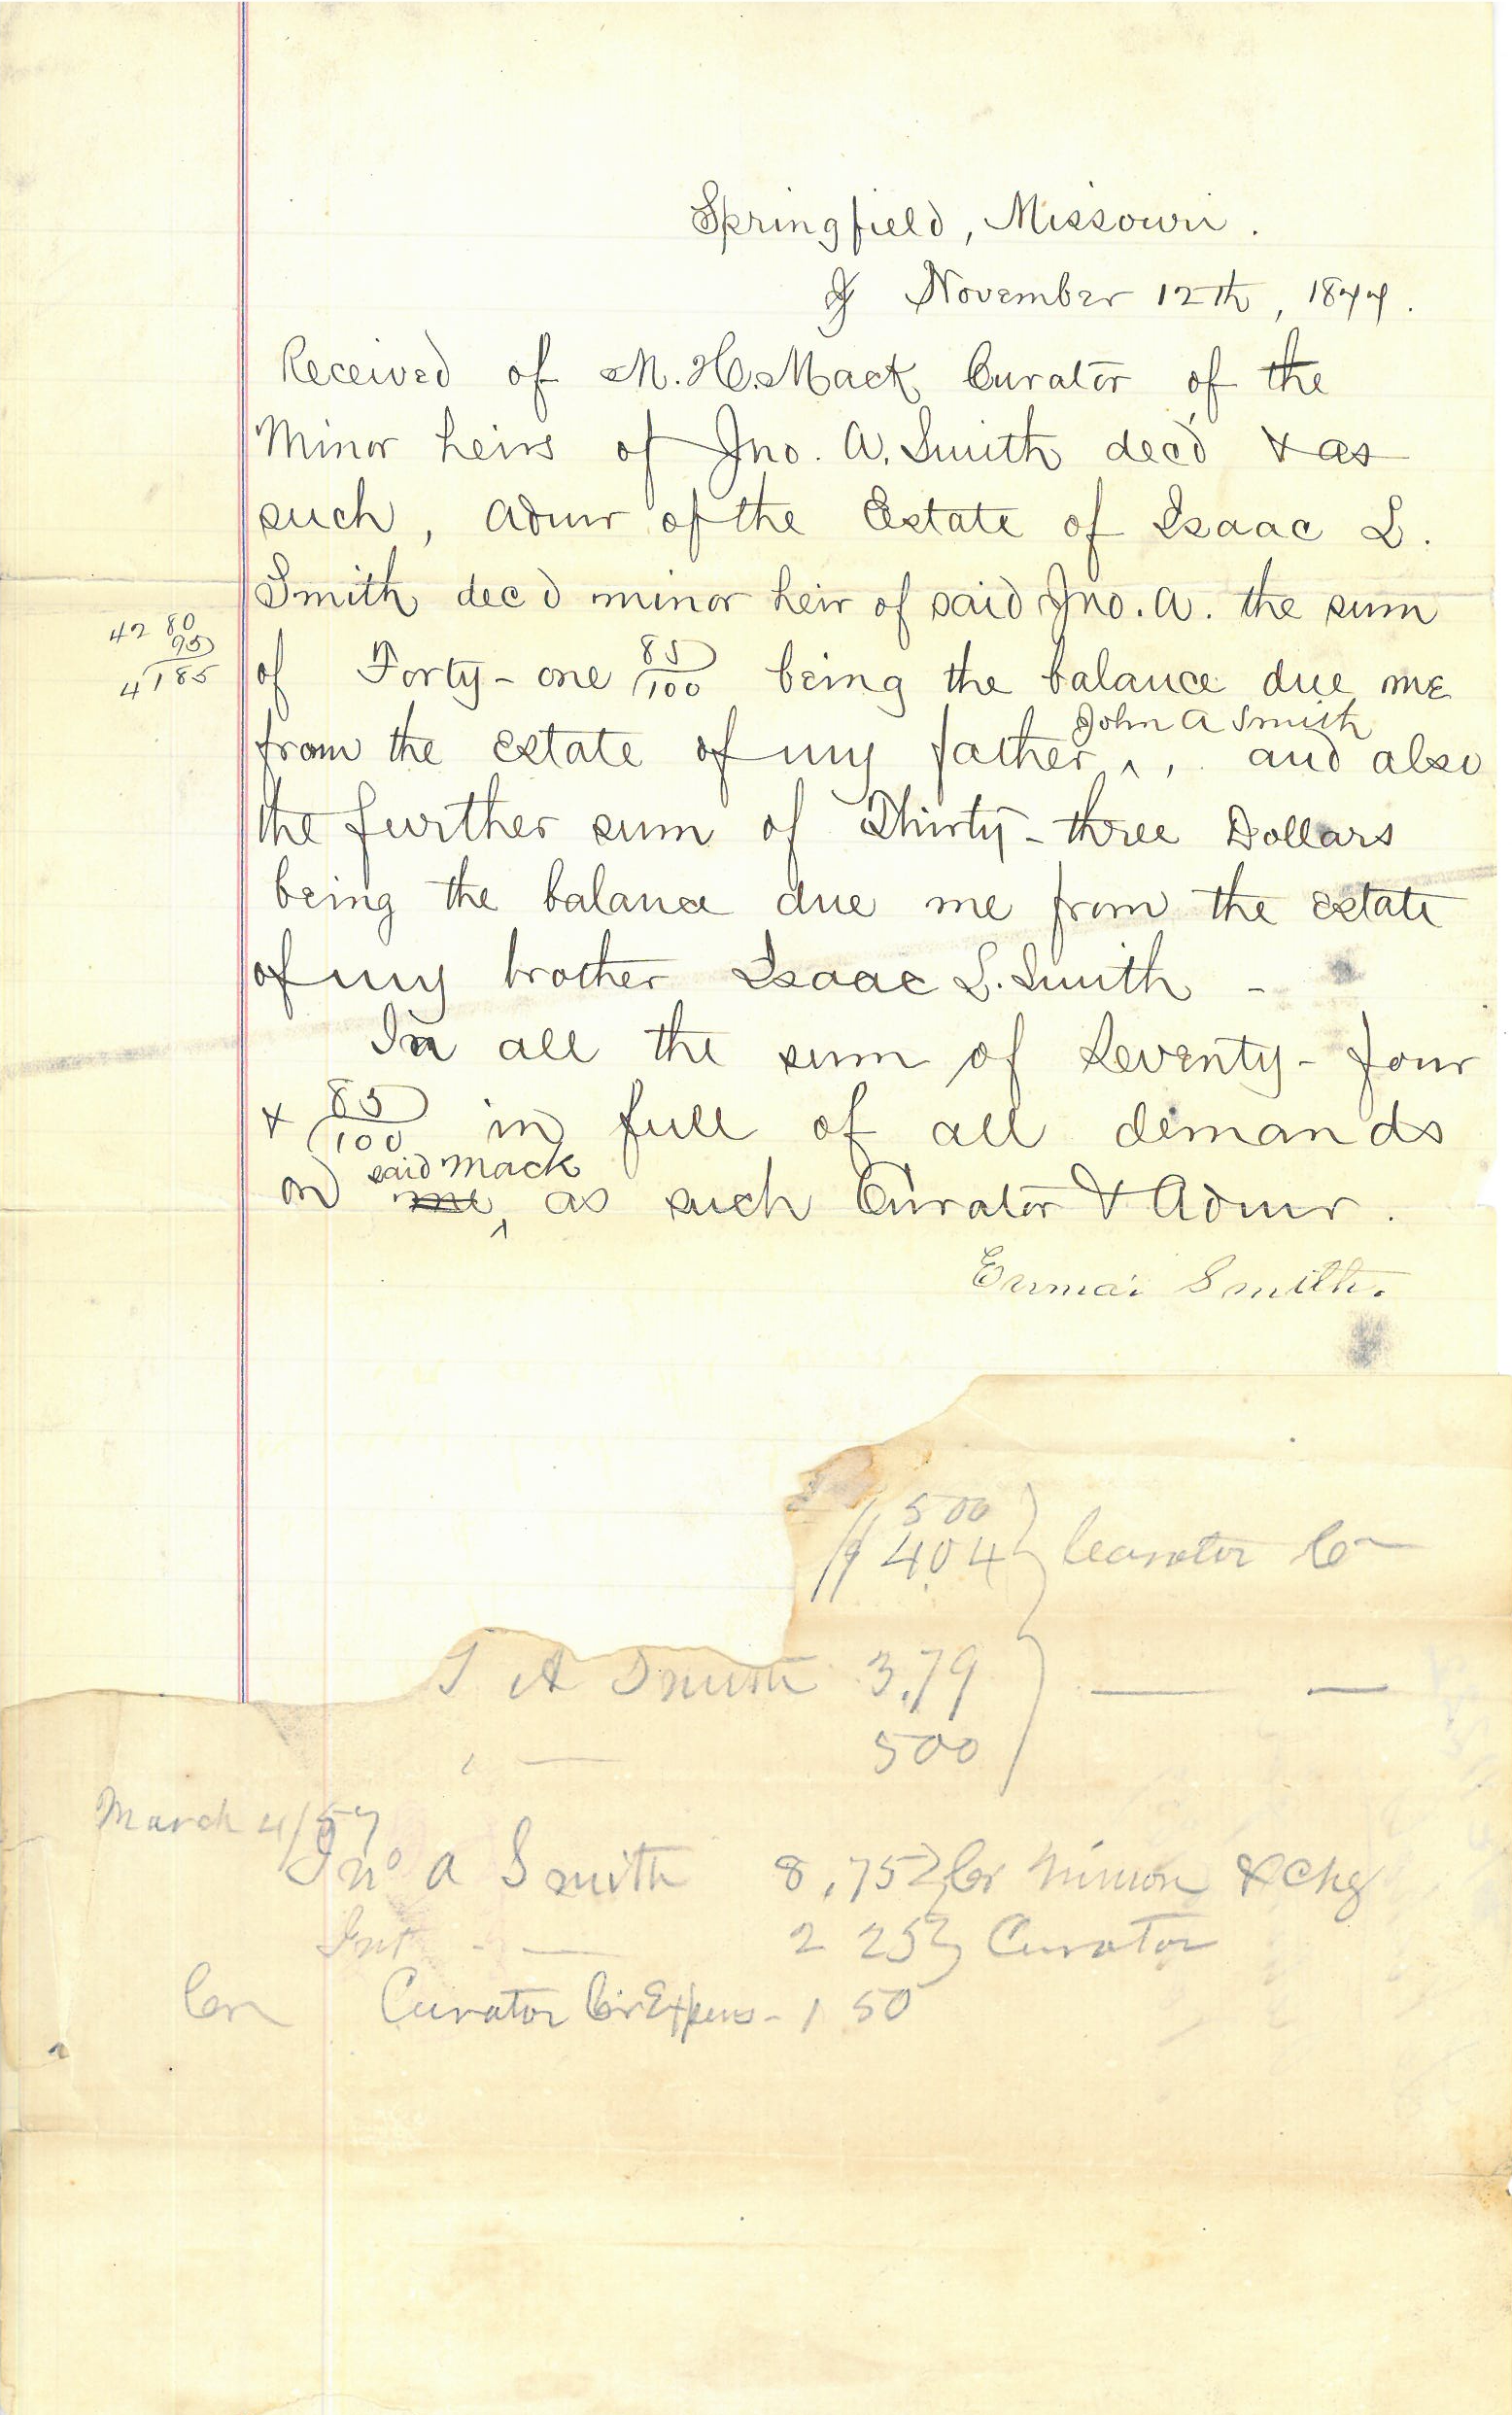 Springfield, Missouri.
November 12th, 1877.
Received of M. H. Mack Curator of the
Minor heirs of Jno. A. Smith dec'd & as
such, Admr of the Estate of Isaac L.
Smith dec'd minor heir of said Jno. A. the sum
42 80
95
41 85
of Forty-one 85/100 being the balance due me
from the estate of my father ^ John A Smith, and also
the further sum of Thirty-three Dollars
being the balance due me from the estate
of my brother Isaac L. Smith -
In all the sum of Seventy-four
& 85/100 in full of all demands
on said Mack as such Curator & Admr.
Emma Smith.
500
404 } Curator Cr
A Smith 3.79
500
March 4/57
Jno A Smith 8,75 } Cr & Chg
Int - — 2 25 } Curator
Curator Cr Expens - 1 50